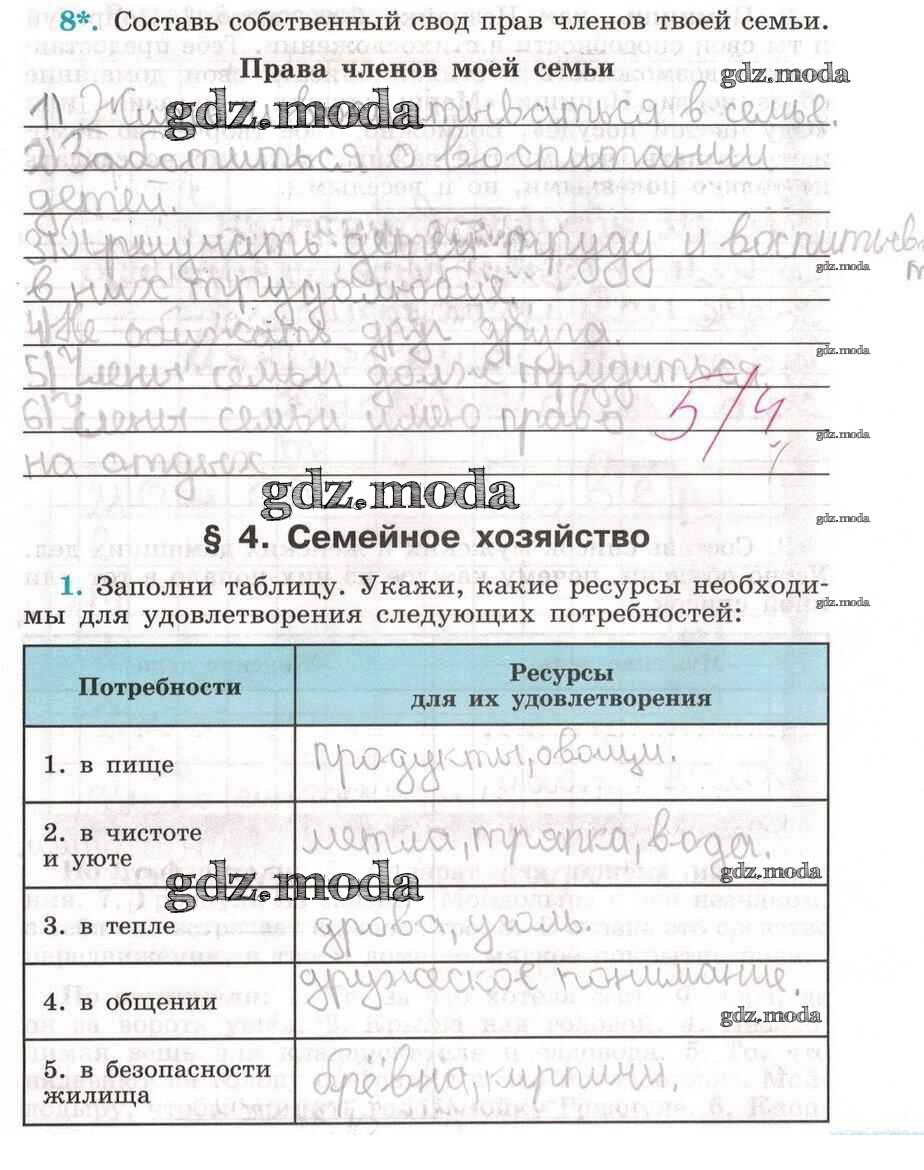 8*. Составь собственный свод прав членов твоей семьи.
Права членов моей семьи
gdz.moda
1) Жить, воспитываться в семье.
gdz.moda
2) Заботиться о воспитании
детей.
3) Приучать детей труду и воспитыва
т
gdz.moda
в них трудолюбие.
4) Не обижать друг друга.
gdz.moda
5) Члены семьи долж трудиться
6) Члены семьи имею право
5/4
gdz.moda
на отдых
gdz.moda
gdz.moda
§ 4. Семейное хозяйство
1. Заполни таблицу. Укажи, какие ресурсы необходи-
gdz.moda
мы для удовлетворения следующих потребностей:
Потребности
Ресурсы
для их удовлетворения
1. в пище
продукты, овощи.
2. в чистоте
и уюте
метла, тряпка, вода.
gdz.moda
gdz.moda
3. в тепле
дрова, уголь.
4. в общении
дружеское понимание.
gdz.moda
5. в безопасности
жилища
брёвна, кирпичи.